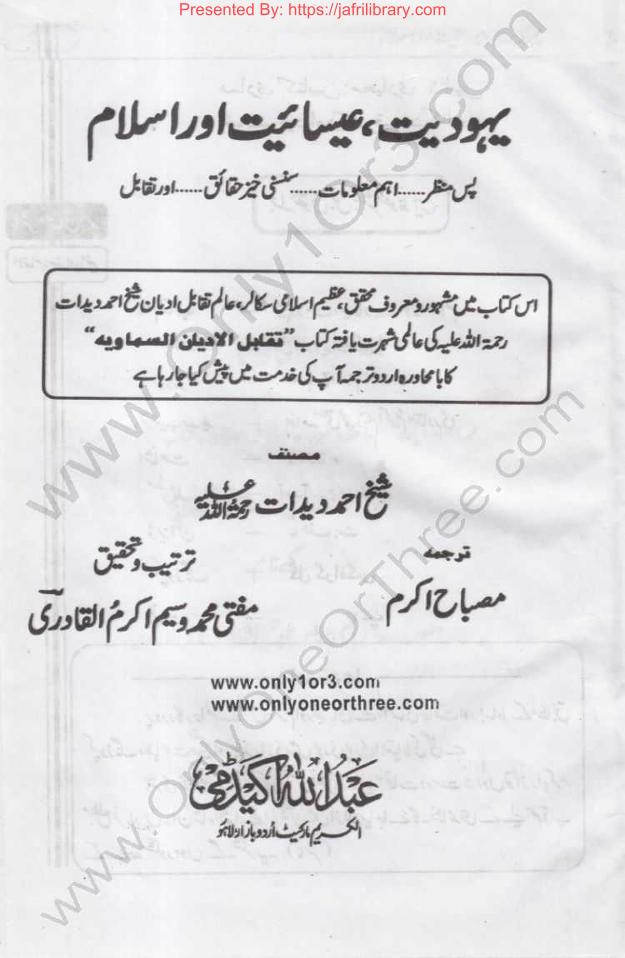 Presented By: https://jafrilibrary.com
یہودیت، عیسائیت اور اسلام
پس منظر......اہم معلومات......سنسنی خیز حقائق......اور تقابل
اس کتاب میں مشہور و معروف محقق، عظیم اسلامی سکالر، عالم تقابل ادیان شیخ احمد دیدات
رحمۃ اللہ علیہ کی عالمی شہرت یافتہ کتاب "تقابل الادیان السماویہ"
کا بامحاورہ اردو ترجمہ آپ کی خدمت میں پیش کیا جا رہا ہے
مصنف
شیخ احمد دیدات رحمۃ اللہ علیہ
ترجمہ
مصباح اکرم
ترتیب و تحقیق
مفتی محمد وسیم اکرم القادری
www.only1or3.com
www.onlyoneorthree.com
عبداللہ اکیڈمی
الکریم مارکیٹ اردو بازار لاہور
www.Only1Or3.com
www.OnlyOneOrThree.com